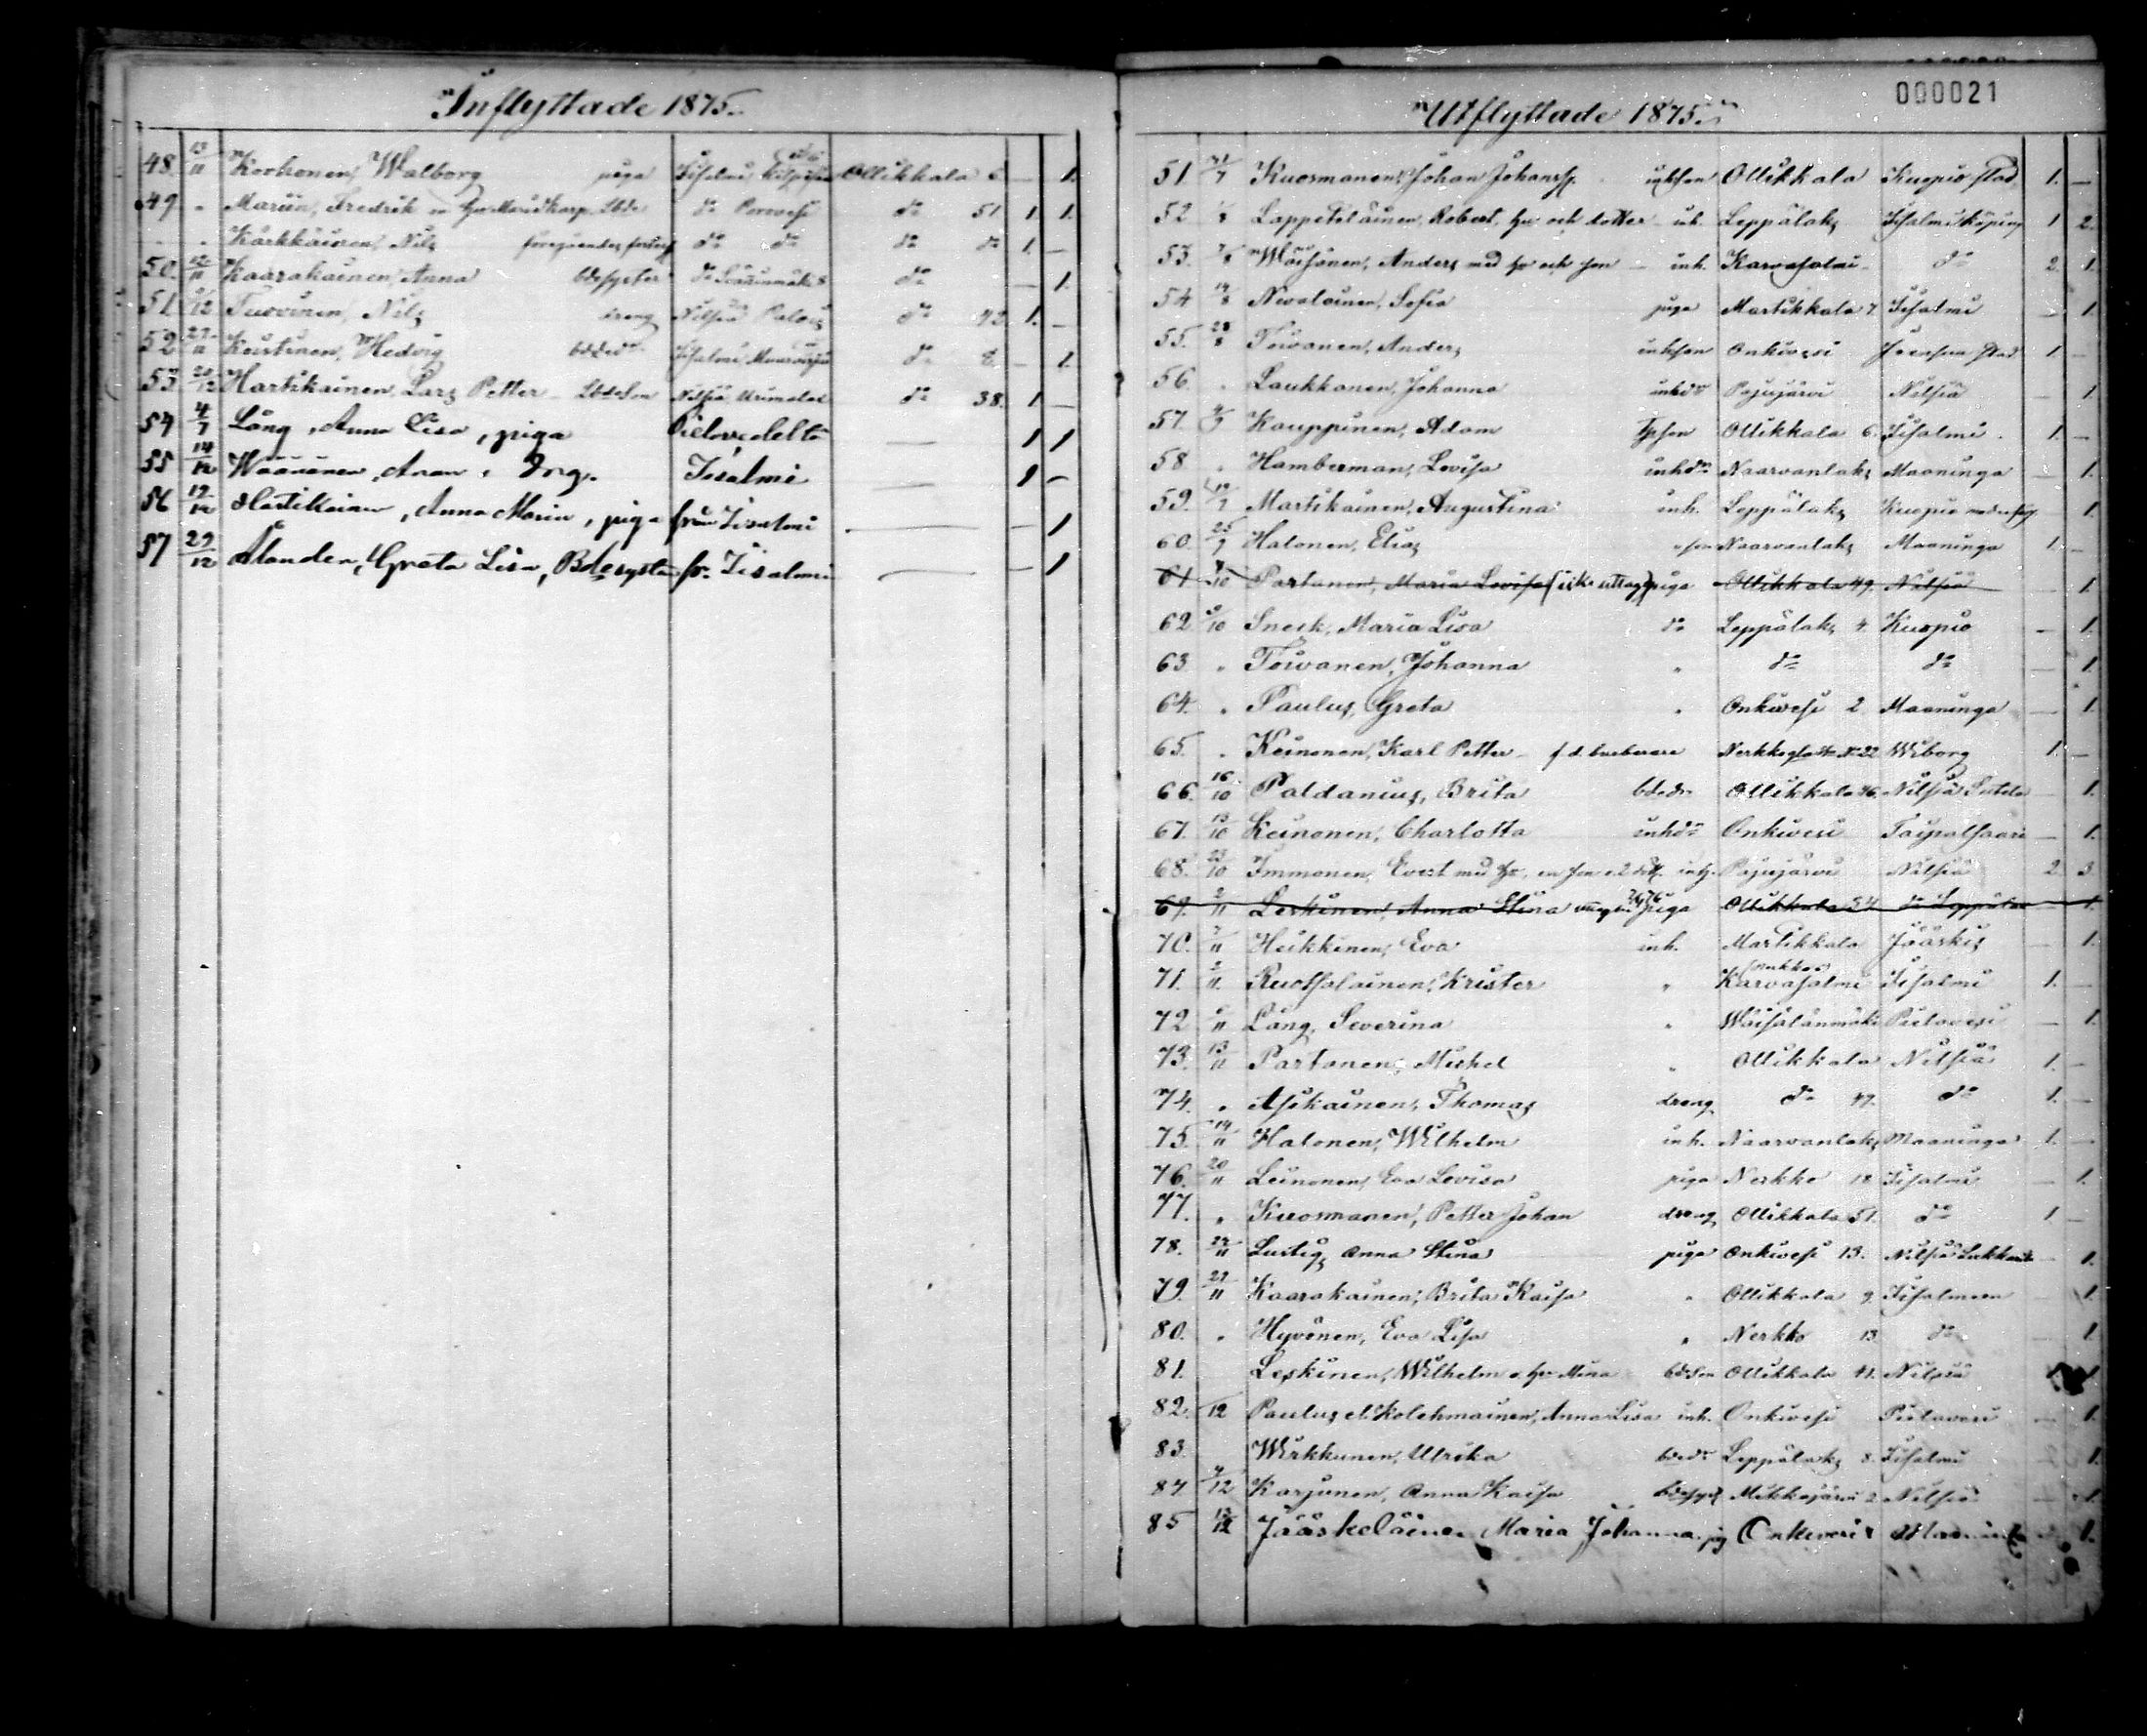 Inflyttade 1875.
48. 13/11 Korhonen, Walborg piga Iisalmi Ollikkala 6 — 1.
49 " Mariin, Fredrik Lbde dº Porovesi dº 51 1. 1.
" " Kärkkäinen, Nils föregåendes dº dº dº dº 1. —
50. 12/11 Kaarakainen, Anna bdesyster dº dº — 1.
51 /12 Tuovinen, Nils dreng Nilsiä Palois dº 42 1. —
52 27/11 Keistinen, Hedvig bdedr Iisalmi dº 8 — 1.
53 20/12 Hartikainen, Lars Petter Lbdeson Nilsiä dº 38. 1 —
54 4/7 Lång, Anna Lisa, piga Pielavedeltä — 1 1
55 14/12 Väänänen, Aron, Drg. Iisalmi — 1 —
56 19/12 Hartikainen, Anna Maria, piga från Iisalmi — — 1
57 29/12 Ålander, Greta Lisa, Bdesyster fr. Iisalmi — — 1
000021
Utflyttade 1875.
51. 31/7 Kuosmanen, Johan Johanss. inhson Ollikkala Kuopio stad 1. —
52 /8 Lappeteläinen, Robert, hu och dotter inh. Leppälaks Iisalmi köping 1 2.
53. 7/8 Wäisänen, Anders med hu och son — inh. Karvasalmi dº 2. 1.
54 14/8 Nevalainen, Sofia piga Martikkala 7. Iisalmi — 1.
55. 28/8 Toivanen, Anders inhson Onkivesi Joensuu stad 1. —
56. " Laukkanen, Johanna inhdr Pajujärvi Nilsiä — 1.
57. 4/9 Kauppinen, Adam Tpson Ollikkala 6. Iisalmi. 1. —
58. " Hamberman, Lovisa inhdr Naarvanlaks Maaninga — 1.
59. /9 Martikainen, Augustina inh. Leppälaks Kuopio — 1.
60. 25/9 Halonen, Elias " son Naarvanlaks Maaninga 1. —
61 8/10 Partanen, Maria Lovisa (icke uttagit) piga Ollikkala 49. Nilsiä — 1.
62 /10 Sneck, Maria Lisa dº Leppälaks 4. Kuopio — 1.
63 " Toivanen, Johanna " dº dº — 1.
64. " Paulus, Greta " Onkivesi 2 Maaninga — 1.
65. " Keinonen, Karl Petter — f.d. Nerkko Nº 22 Wiborg 1. —
66. 16/10 Paldanius, Brita bdedr Ollikkala 46. Nilsiä — 1.
67. 13/10 Keinonen, Charlotta inhdr Onkivesi Taipalsaari — 1.
68. 23/10 Immonen, Evert med hu, en son o 2 dött. inh. Pajujärvi Nilsiä 2. 3
69. 2/11 Leskinen, Anna Stina piga Ollikkala 34 dº — 1.
70. 7/11 Heikkinen, Eva inh. Martikkala Jääskis — 1.
71. 2/11 Ruotsalainen, Krister " Karvasalmi Iisalmi 1. —
72 6/11 Lång, Severina " Wäisälänmäki Pielavesi — 1.
73. 13/11 Partanen, Michel " Ollikkala Nilsiä 1. —
74. " Asikainen, Thomas dreng dº 47. dº 1. —
75. 14/11 Halonen, Wilhelm inh. Naarvanlaks Maaninga 1. —
76. 20/11 Leinonen, Eva Lovisa piga Nerkko 18 Iisalmi — 1.
77. " Kuosmanen, Petter Johan dreng Ollikkala 51. dº 1 —
78. 22/11 Lustig, Anna Stina piga Onkivesi 13. Nilsiä — 1.
79. 27/11 Kaarakainen, Brita Kaisa " Ollikkala 9. Iisalmeen — 1.
80. " Hyvönen, Eva Lisa " Nerkko 13 dº — 1.
81. Leskinen, Wilhelm o hu Mina bdeson Ollikkala 41. Nilsiä 1 1
82. /12 Paulus el. Kolehmainen, Anna Lisa inh. Onkivesi Pielavesi — 1.
83. Wirkkunen, Ulrika bdedr Leppälaks 8. Iisalmi 1.
84 4/12 Karjunen, Anna Kaisa bdesyst Nilsiä — 1.
85 12/12 Jääskeläinen Maria Johanna pig Onkivesi Maaninga 1.